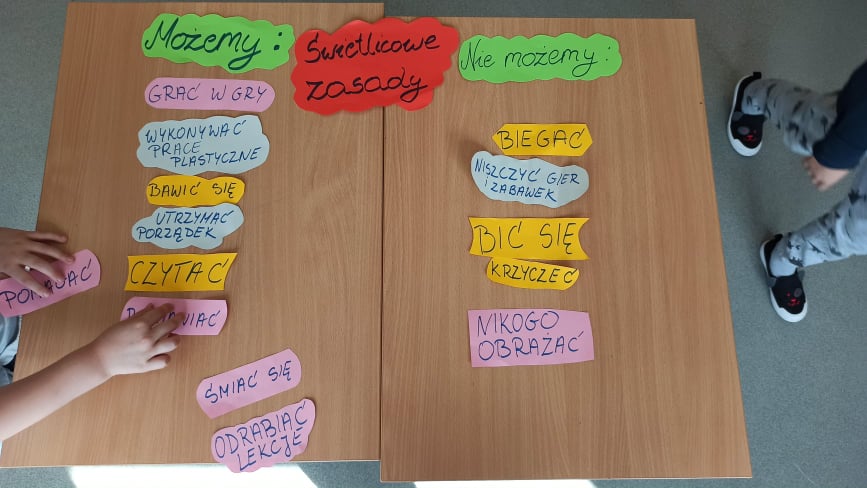 Możemy:
Świetlicowe
zasady
Nie możemy:
GRAĆ W GRY
WYKONYWAĆ
PRACE
PLASTYCZNE
BAWIĆ SIĘ
UTRZYMAĆ
PORZĄDEK
CZYTAĆ
ŚMIAĆ SIĘ
ODRABIAĆ
LEKCJE
BIEGAĆ
NISZCZYĆ GIER
I ZABAWEK
BIĆ SIĘ
KRZYCZEĆ
NIKOGO
OBRAŻAĆ